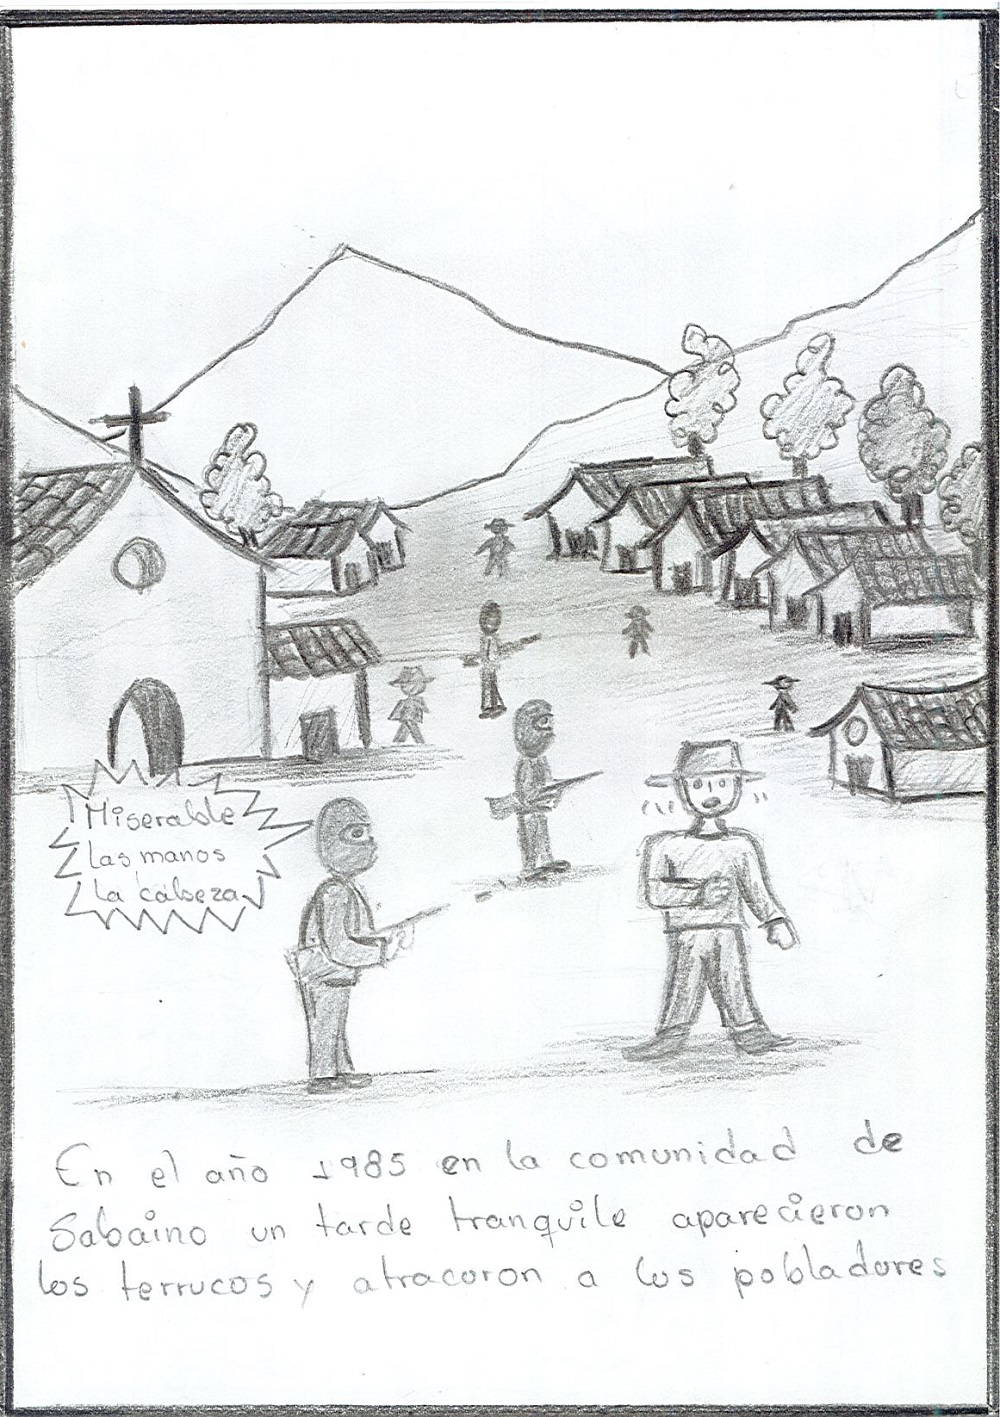 Miserable
las manos
la cabeza
En el año 1985 en la comunidad de
Sabaino un tarde tranquile aparecieron
los terrucos y atracoron a los pobladores